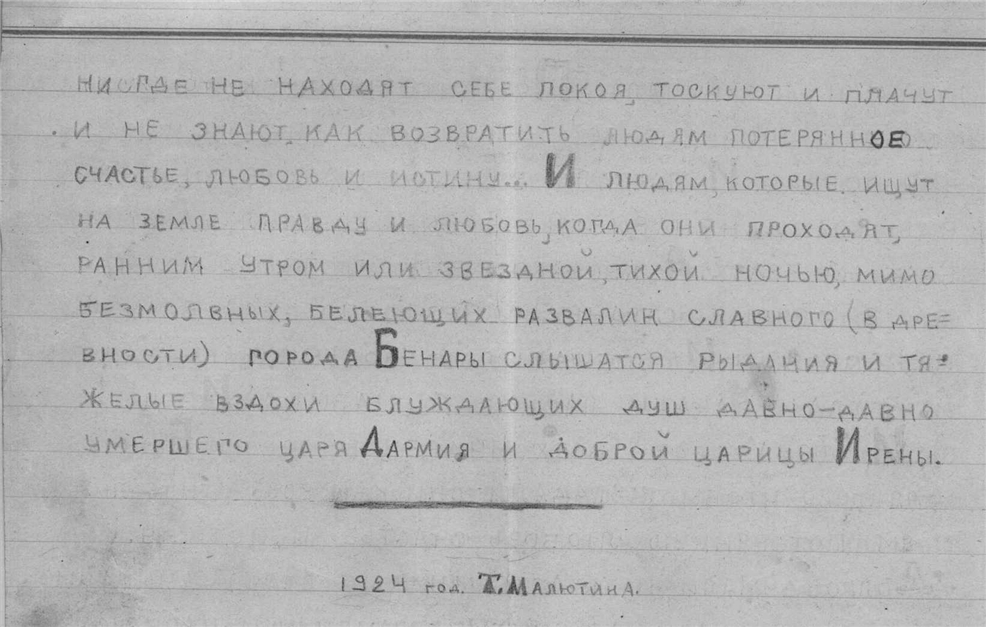 НИ ГДЕ НЕ НАХОДЯТ СЕБЕ ПОКОЯ, ТОСКУЮТ И ПЛАЧУТ
И НЕ ЗНАЮТ, КАК ВОЗВРАТИТЬ ЛЮДЯМ ПОТЕРЯННОЕ
СЧАСТЬЕ, ЛЮБОВЬ И ИСТИНУ... И ЛЮДЯМ, КОТОРЫЕ ИЩУТ
НА ЗЕМЛЕ ПРАВДУ И ЛЮБОВЬ, КОГДА ОНИ ПРОХОДЯТ,
РАННИМ УТРОМ ИЛИ ЗВЕЗДНОЙ, ТИХОЙ НОЧЬЮ, МИМО
БЕЗМОЛВНЫХ, БЕЛЕЮЩИХ РАЗВАЛИН СЛАВНОГО (В ДРЕ=
ВНОСТИ) ГОРОДА БЕНАРЫ СЛЫШАТСЯ РЫДАНИЯ И ТЯ=
ЖЕЛЫЕ ВЗДОХИ БЛУЖДАЮЩИХ ДУШ ДАВНО-ДАВНО
УМЕРШЕГО ЦАРЯ ДАРМИЯ И ДОБРОЙ ЦАРИЦЫ ИРЕНЫ.
1924 ГОД. Т. МАЛЮТИНА.